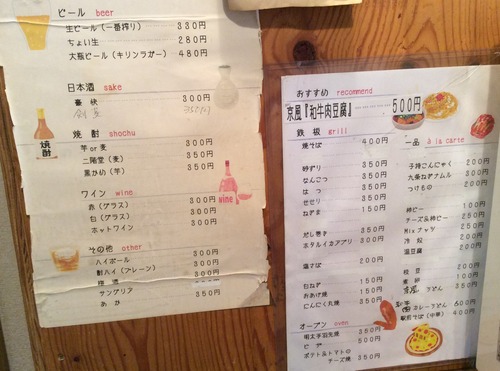 ビール beer
生ビール(一番搾り) 330円
ちょい生 280円
大瓶ビール(キリンラガー) 480円
日本酒 sake
豪快 300円
焼酎 shochu
芋or麦 300円
二階堂(麦) 350円
黒かめ(芋) 350円
焼酎
ワイン wine
赤(グラス) 300円
白(グラス) 300円
ホットワイン 300円
wine
その他 other
ハイボール 300円
酎ハイ(プレーン) 300円
梅酒
サングリア 350円
おすすめ recommend
京風『和牛肉豆腐』 500円
鉄板 grill
焼そば 400円
砂ずり 350円
なんこつ 350円
はつ 350円
せせり 350円
ねぎま 150円
だし巻き 350円
ホタルイカアブリ 300円
塩さば 200円
白ねぎ 150円
おあげ焼 150円
にんにく丸焼 350円
オーブン oven
明太手羽先焼 350円
ピザ 500円
ポテト&トマト
チーズ焼 350円
一品 à la carte
子持こんにゃく 200円
九条ねぎナムル 300円
つけもの 200円
チーズ&
Mixナッツ 200円
冷奴 200円
湯豆腐 200円
枝豆 200円
カレーうどん 600円